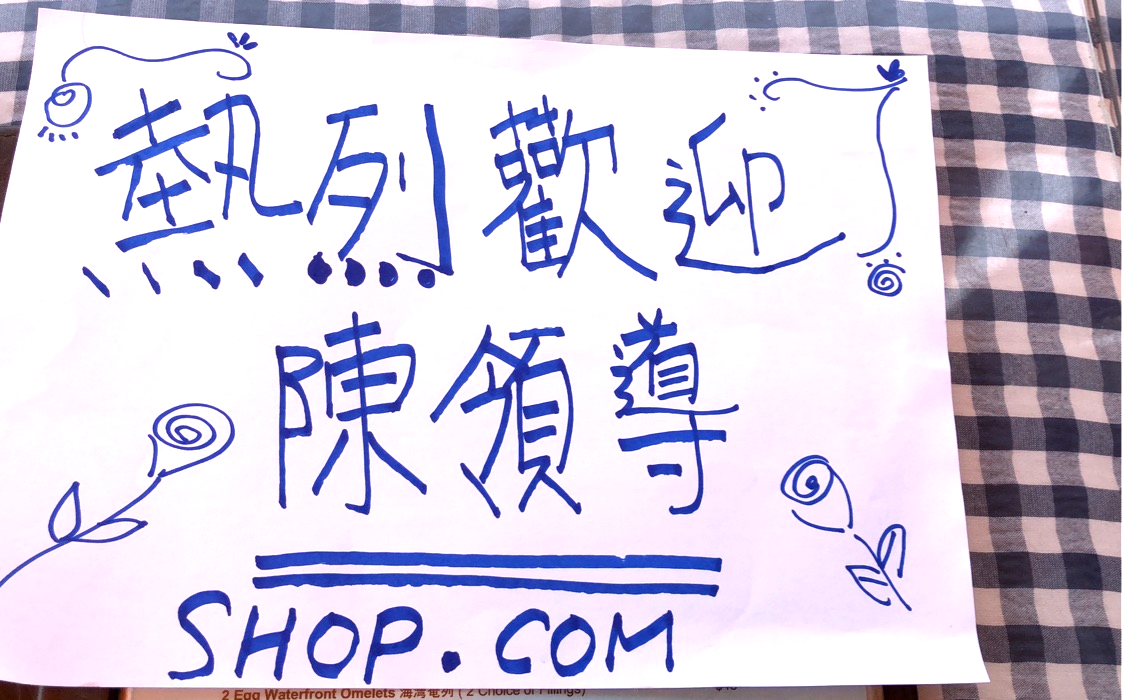 熱烈歡迎
陳領導
SHOP.COM
2 Egg Waterfront Omelets 海灣奄列 ( 2 Choice of Fillings)